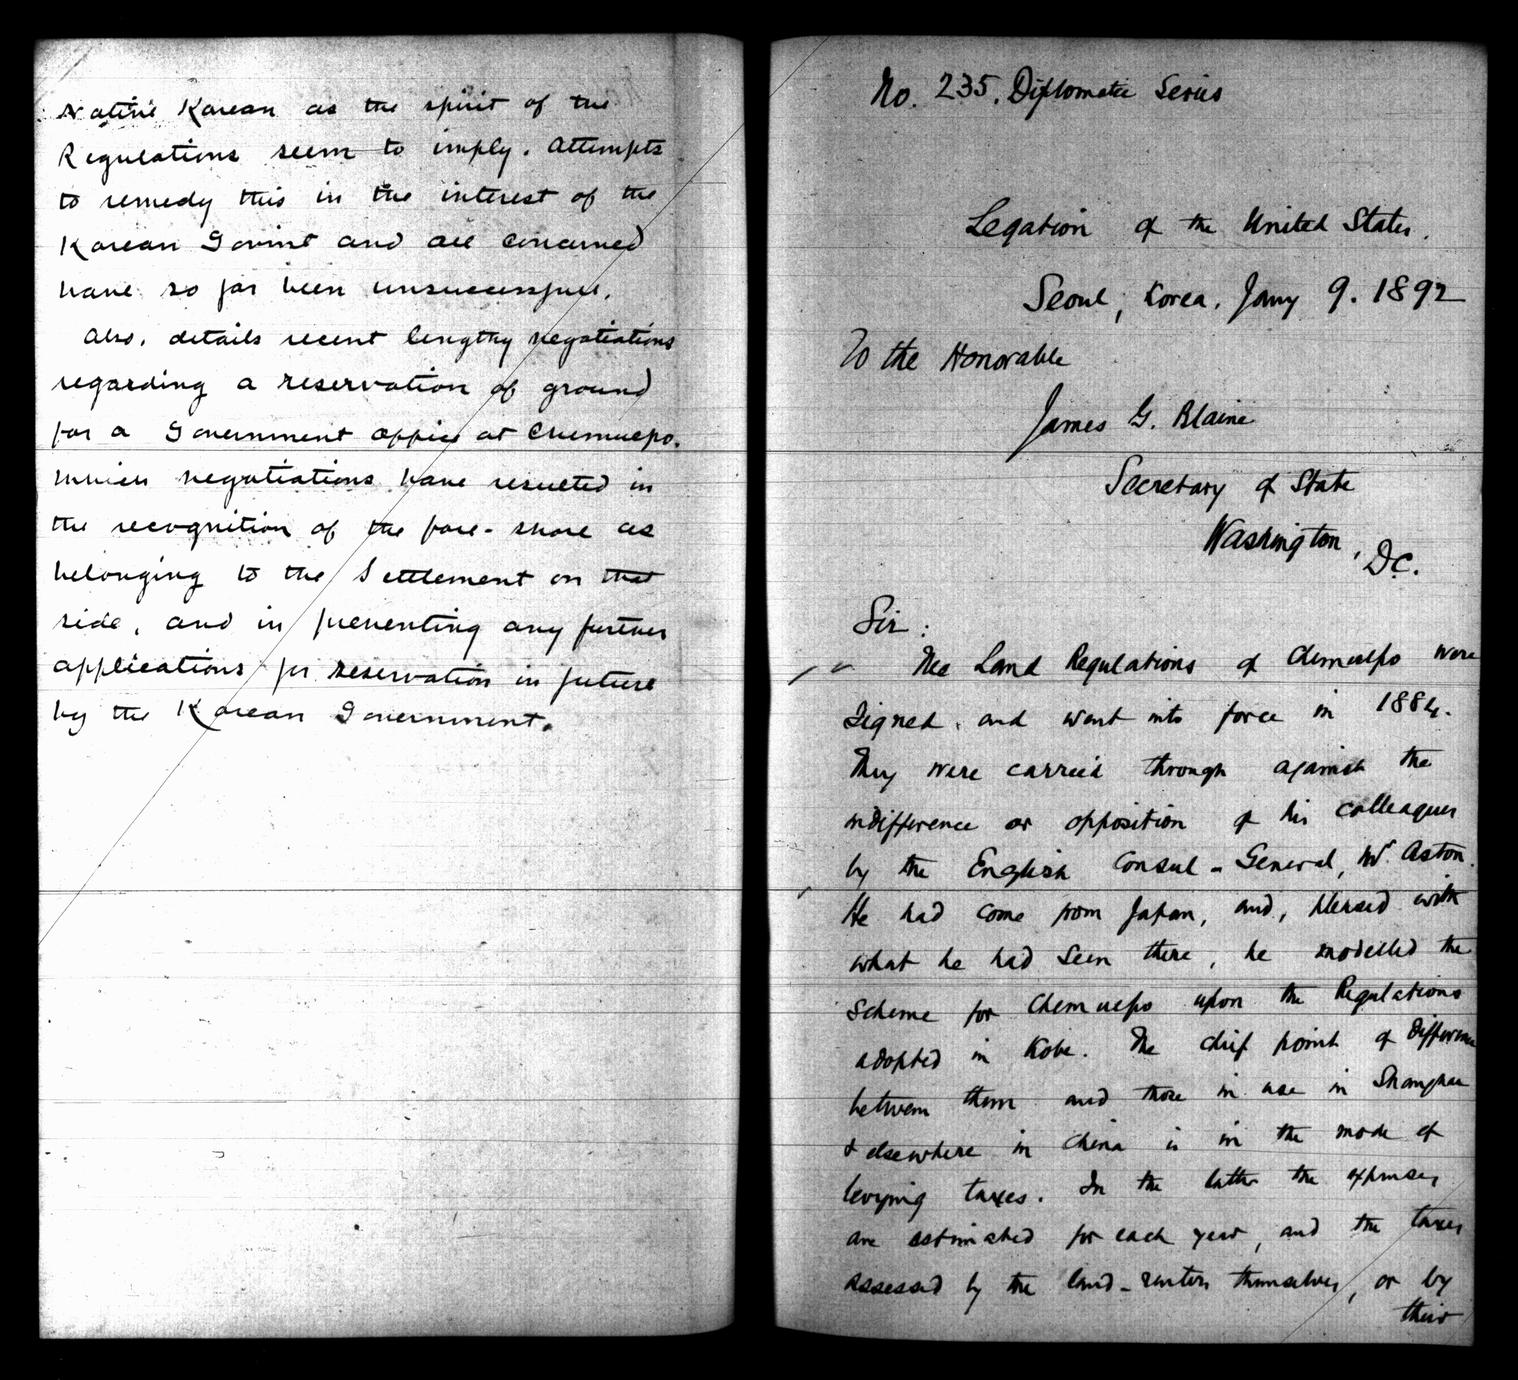 Native Korean as the spirit of the
Regulations seem to imply. Attempts
to remedy this in the interest of the
Korean Govmt and all concerned
have so far been unsuccessful.
Also, details recent lengthy negotiations
regarding a reservation of ground
for a Government office at Chemulpo.
which negotiations have resulted in
the recognition of the fore-shore as
belonging to the Settlement on that
side, and in preventing any further
applications for reservation in future
by the Korean Government.
No. 235. Diplomatic Series
Legation of the United States.
Seoul, Korea, Jany 9. 1892
To the Honorable
James G. Blaine
Secretary of State
Washington, D.C.
Sir:
The Land Regulations of Chemulpo were
signed, and went into force in 1884.
They were carried through against the
indifference or opposition of his colleagues
by the English Consul-General, Mr. Aston.
He had come from Japan, and, pleased with
what he had seen there, he modelled the
scheme for Chemulpo upon the Regulations
adopted in Kobe. The chief point of difference
between them and those in use in Shanghai
& elsewhere in China is in the mode of
levying taxes. In the latter the expenses
are estimated for each year, and the taxes
assessed by the land-renters themselves, or by
their